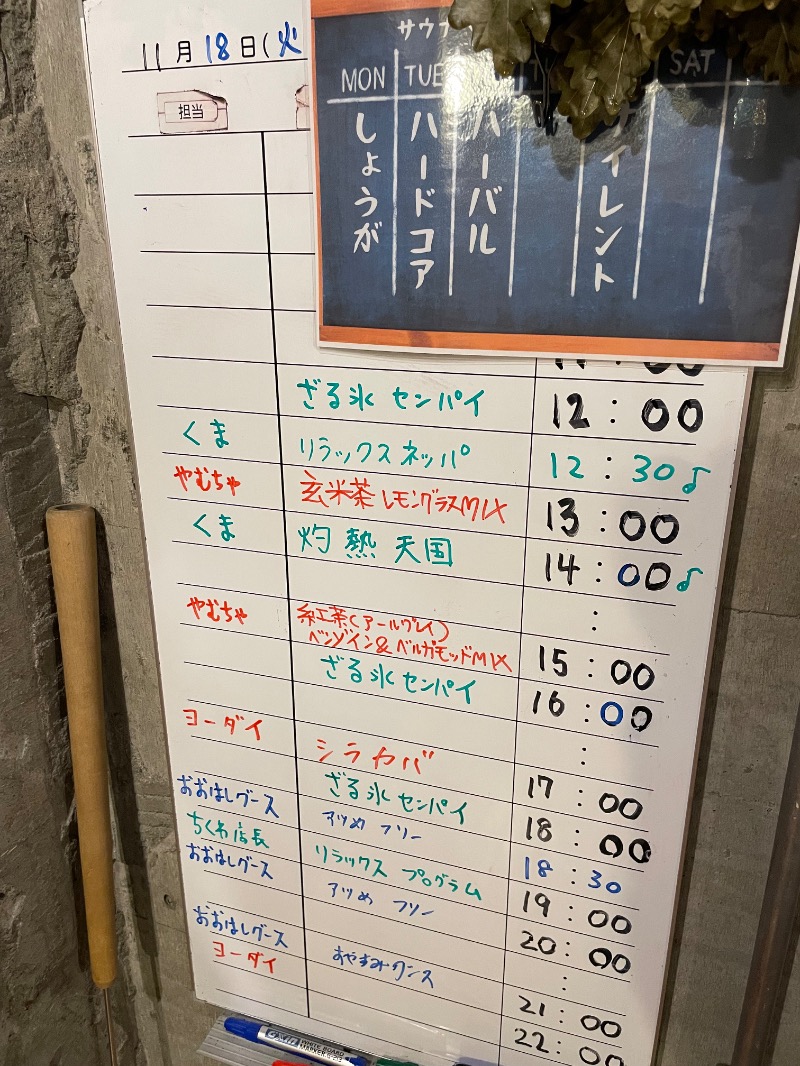 11月18日(火
担当
サウナ
MON TUE SAT
しょうが
ハードコア
ハーバル
イレント
ざる氷センパイ 12:00
くま リラックスネッパ 12:30♪
やむちゃ 玄米茶レモングラスMIX 13:00
くま 灼熱天国 14:00♪
:
やむちゃ 紅茶(アールグレイ)
ベンゾイン&ベルガモットMIX 15:00
ざる氷センパイ 16:00
:
ヨーダイ シラカバ 17:00
ざる氷センパイ 18:00
おおはしグース アツめフリー 18:30
ちくわ店長 リラックスプログラム 19:00
おおはしグース アツめフリー 20:00
:
おおはしグース おやすみダンス 21:00
ヨーダイ 22:00
WHITE BOARD
MARKER